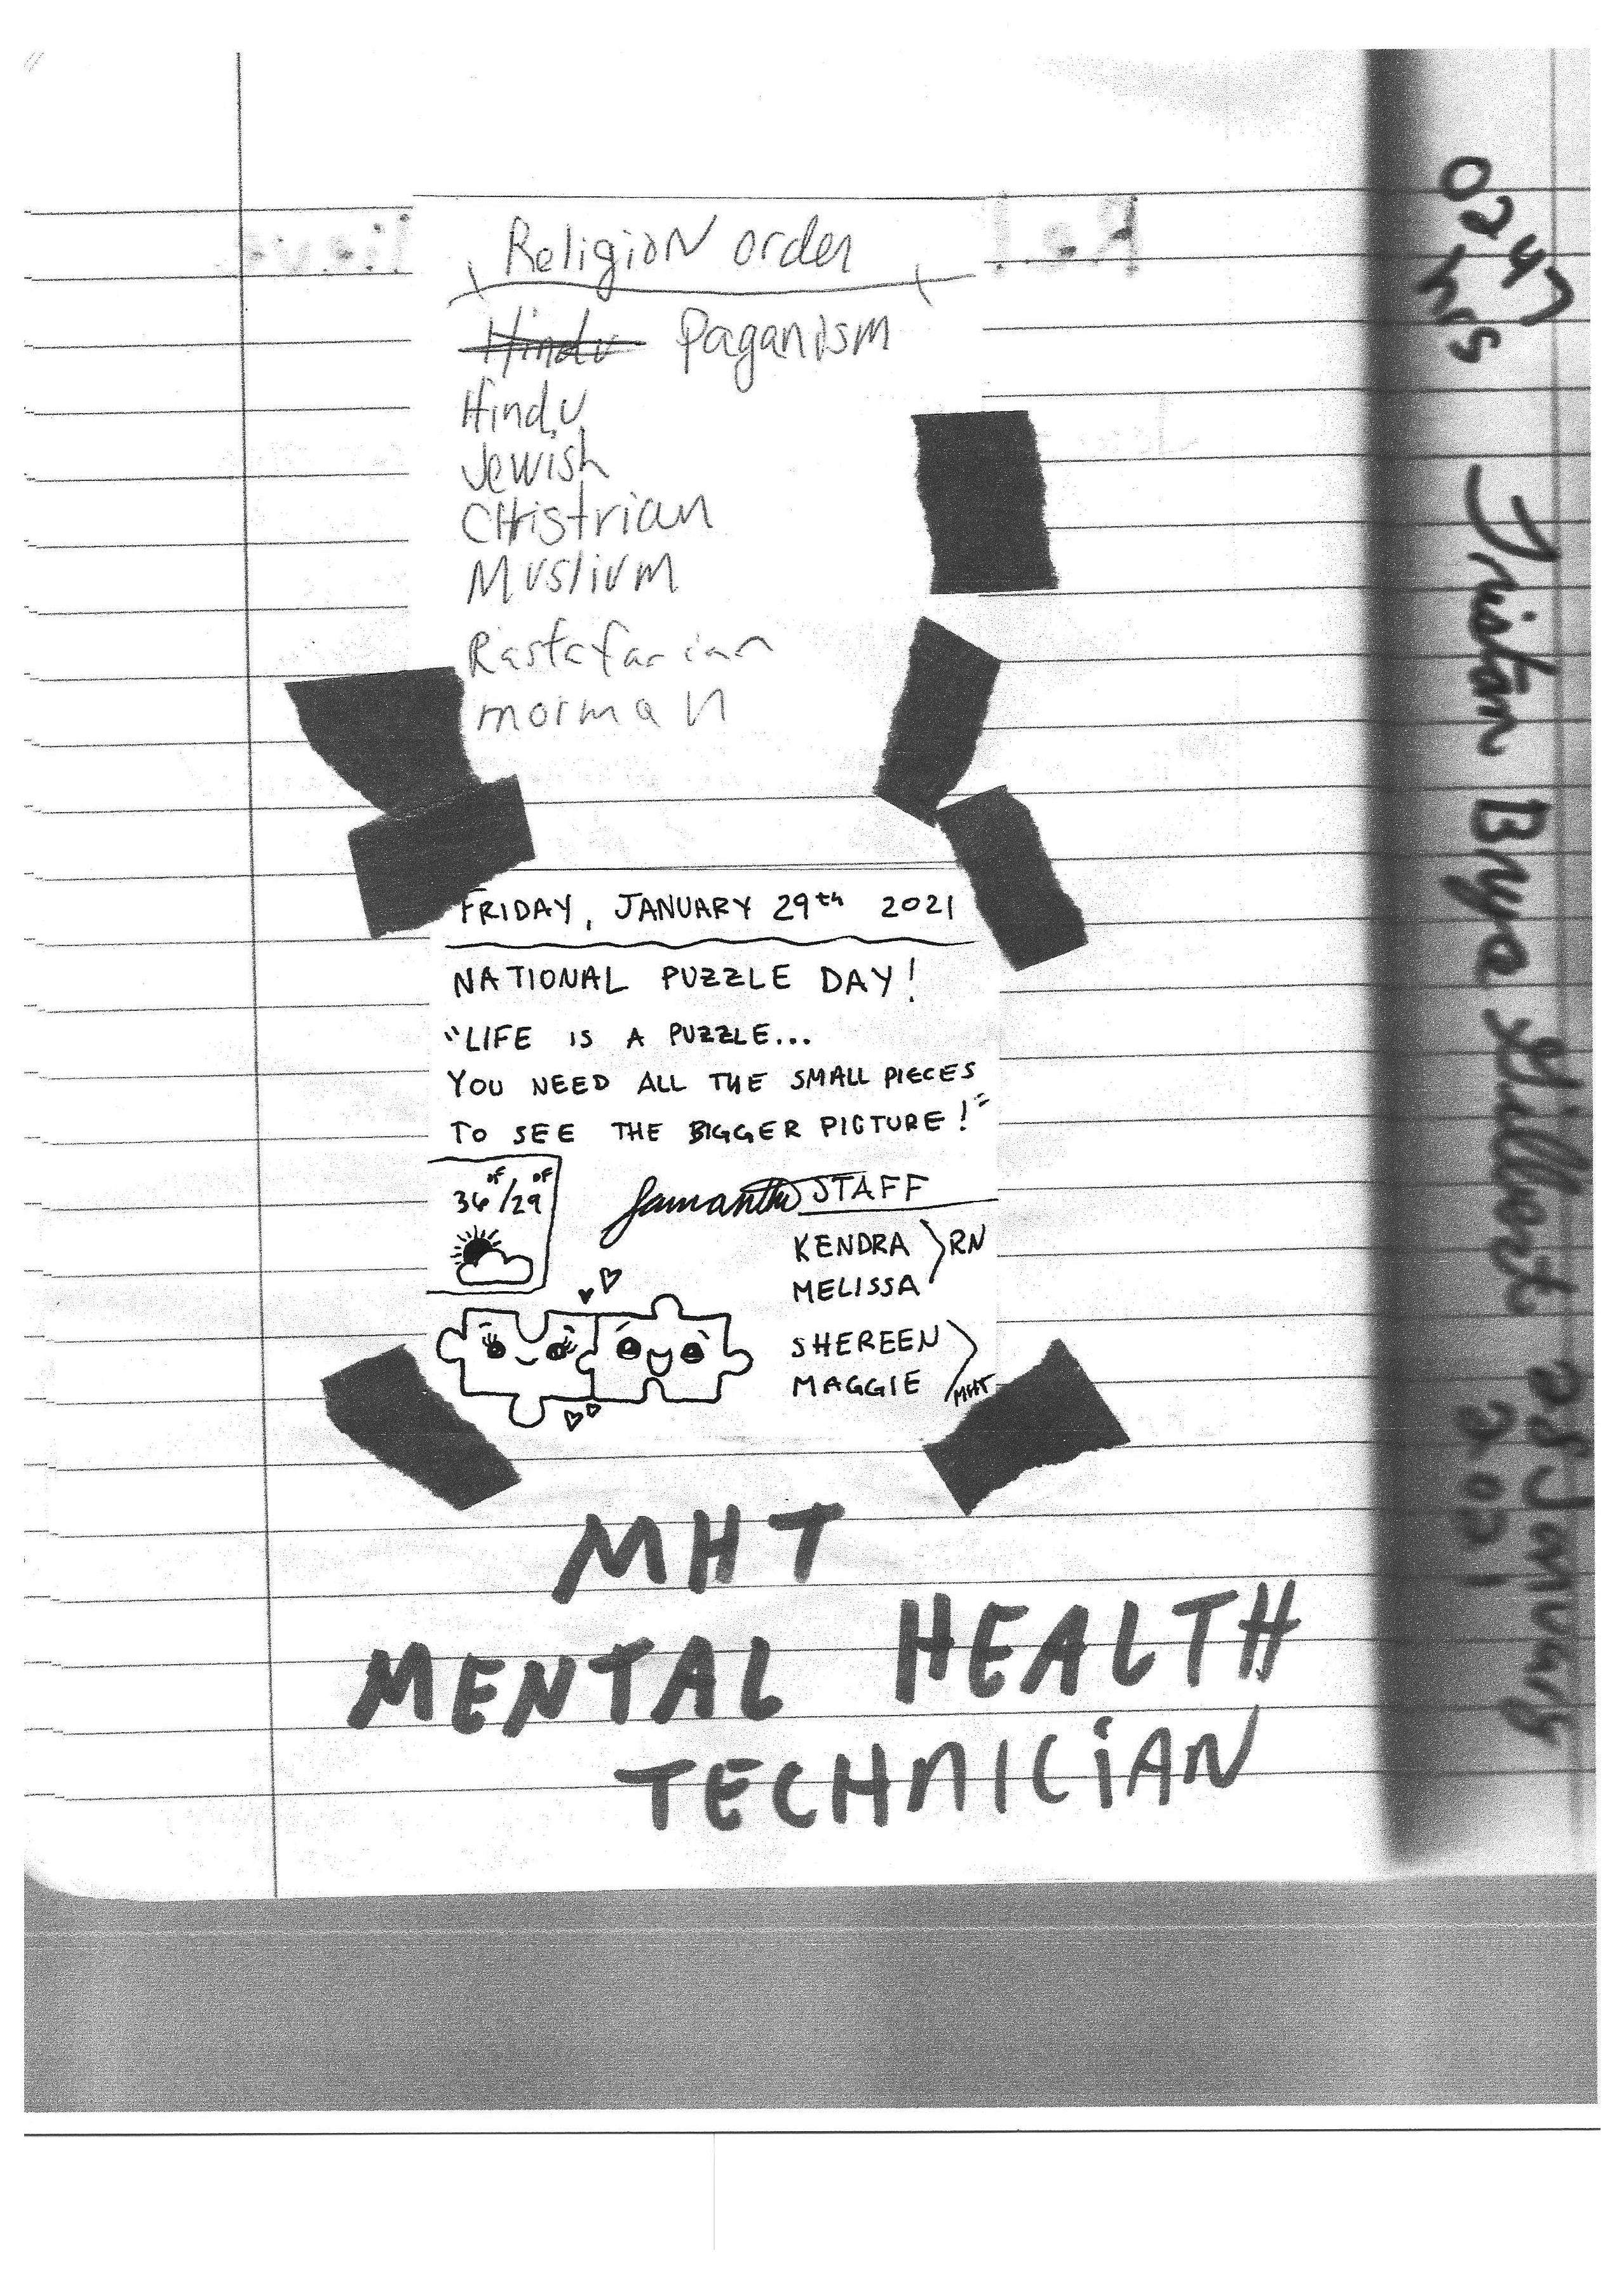 Religion order
Hindu Paganism
Hindu
Jewish
CHistrian
Muslium
Rastafarian
morman
FRIDAY, JANUARY 29th 2021
NATIONAL PUZZLE DAY!
"LIFE IS A PUZZLE...
YOU NEED ALL THE SMALL PIECES
TO SEE THE BIGGER PICTURE!"
36°F/29°F
Samantha STAFF
KENDRA RN
MELISSA
SHEREEN
MAGGIE MHT
MHT
MENTAL HEALTH
TECHNICIAN
0247 hrs
Tristan Brya 28 January
2021